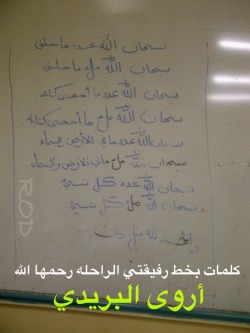 سبحان الله عدد ما خلق
سبحان الله ملء ما خلق
سبحان الله عدد ما أحصى كتابه
سبحان الله ملء ما أحصى كتابه
سبحان الله عدد ما في الأرض والسماء
سبحان الله ملء ما في الأرض والسماء
سبحان الله عدد كل شيء
سبحان الله ملء كل شيء
والحمد لله مثل ذلك
كلمات بخط رفيقتي الراحله رحمها الله
أروى البريدي